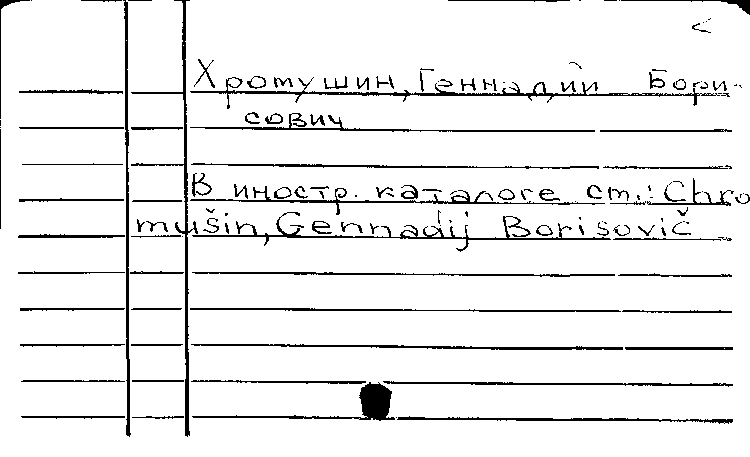 <
Хромушин, Геннадий Бори-
сович
В иностр. каталоге см.: Chro
mušin, Gennadij Borisovič